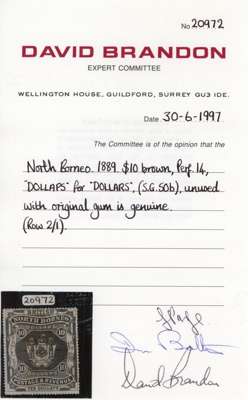 No 20972
DAVID BRANDON
EXPERT COMMITTEE
WELLINGTON HOUSE, GUILDFORD, SURREY GU3 IDE.
Date 30-6-1997
The Committee is of the opinion that the
North Borneo 1889 $10 brown, Perf. 14,
"DOLLAPS" for "DOLLARS", (S.G.50b), unused
with original gum is genuine.
(Row 2/1).
20972
NORTH BORNEO
10 10
POSTAGE & REVENUE
TEN DOLLARS
David Brandon